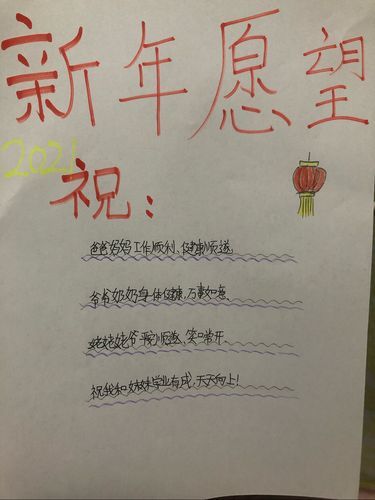 新年愿望
2021
祝：
爸爸妈妈工作顺利、健康顺遂
爷爷奶奶身体健康，万事如意、
姥姥姥爷平安顺遂、笑口常开、
祝我和妹妹学业有成，天天向上！